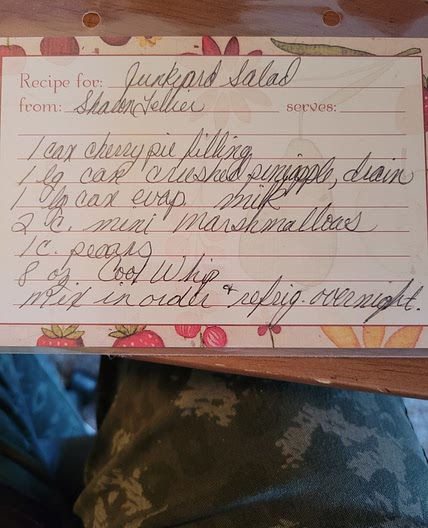 Recipe for: Junkyard Salad
from: Sharon Tellier serves:
1 can cherry pie filling
1 lg can crushed pineapple, drain
1 lg can evap. milk
2 c. mini marshmallows
1 c. pecans
8 oz Cool Whip
Mix in order & refrig. overnight.